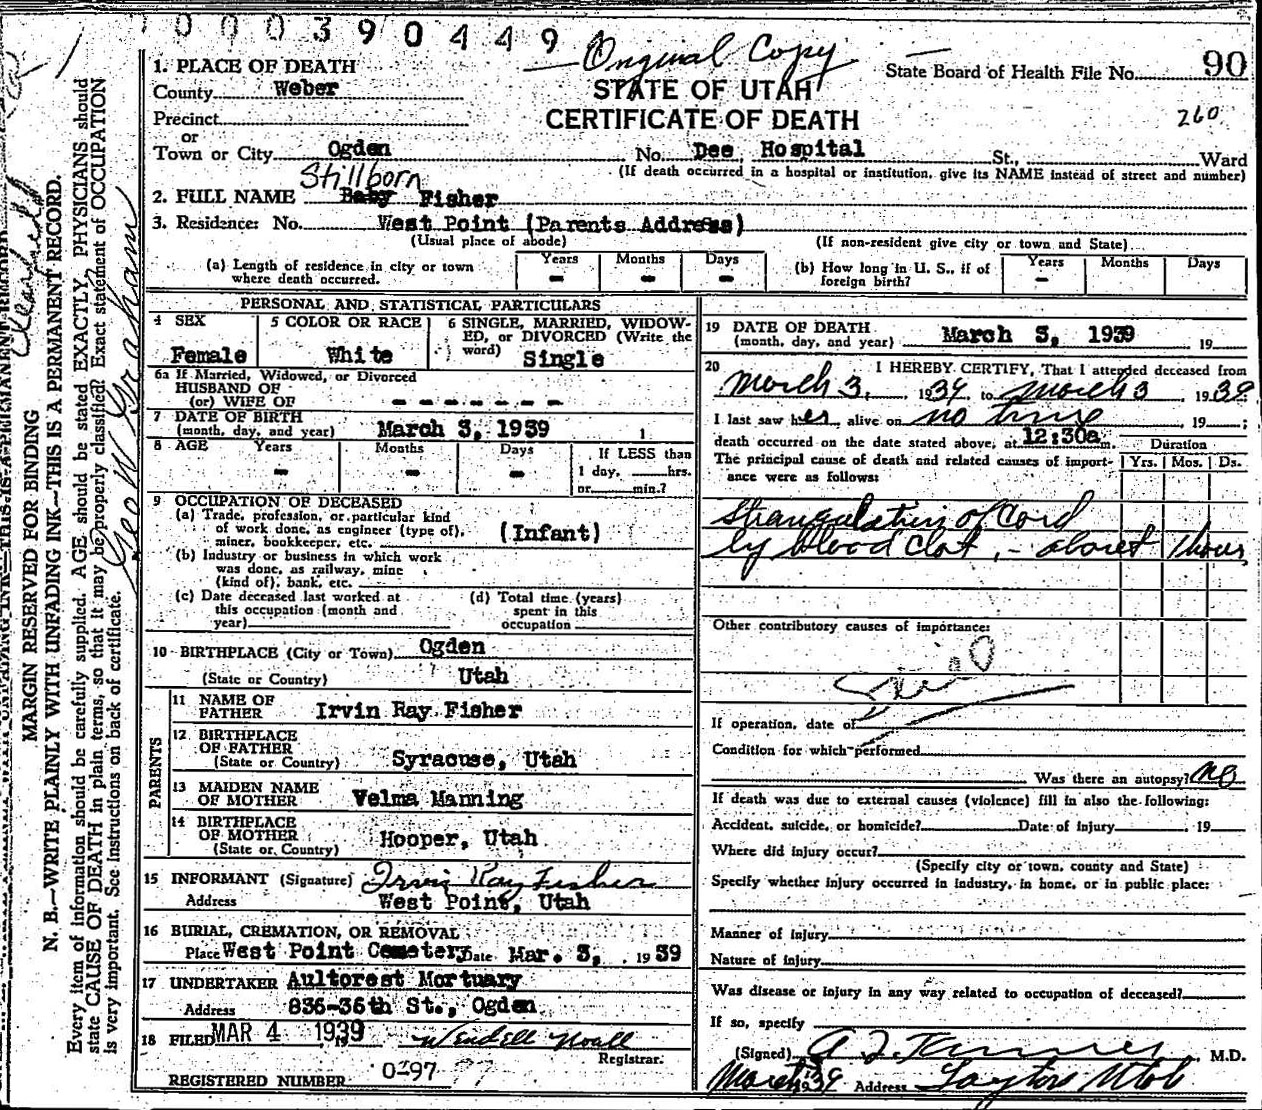 0003904491
Original Copy
State Board of Health File No. 90
260
STATE OF UTAH
CERTIFICATE OF DEATH
1. PLACE OF DEATH
County Weber
Precinct
or
Town or City Ogden No. Dee Hospital St., Ward
(If death occurred in a hospital or institution, give its NAME instead of street and number)
Stillborn
2. FULL NAME Baby Fisher
3. Residence: No. West Point (Parents Address)
(Usual place of abode) (If non-resident give city or town and State)
(a) Length of residence in city or town where death occurred. Years - Months - Days -
(b) How long in U. S., if of foreign birth? Years - Months Days
PERSONAL AND STATISTICAL PARTICULARS
4 SEX Female
5 COLOR OR RACE White
6 SINGLE, MARRIED, WIDOWED, or DIVORCED (Write the word) Single
6a If Married, Widowed, or Divorced
HUSBAND OF
(or) WIFE OF - - - - - - -
7 DATE OF BIRTH
(month, day, and year) March 3, 1939
8 AGE Years - Months - Days - If LESS than
1 day, hrs.
or min.?
9 OCCUPATION OF DECEASED
(a) Trade, profession, or particular kind
of work done, as engineer (type of),
miner, bookkeeper, etc. (Infant)
(b) Industry or business in which work
was done, as railway, mine
(kind of), bank, etc.
(c) Date deceased last worked at
this occupation (month and
year)
(d) Total time (years)
spent in this
occupation
10 BIRTHPLACE (City or Town) Ogden
(State or Country) Utah
PARENTS
11 NAME OF
FATHER Irvin Ray Fisher
12 BIRTHPLACE
OF FATHER
(State or Country) Syracuse, Utah
13 MAIDEN NAME
OF MOTHER Velma Manning
14 BIRTHPLACE
OF MOTHER
(State or Country) Hooper, Utah
15 INFORMANT (Signature) Irvin Ray Fisher
Address West Point, Utah
16 BURIAL, CREMATION, OR REMOVAL
Place West Point Cemetery Date Mar. 3, 1939
17 UNDERTAKER Aultorest Mortuary
Address 836-36th St., Ogden
18 FILED MAR 4 1939 Wendell Noall
Registrar.
REGISTERED NUMBER 0297 97
19 DATE OF DEATH
(month, day, and year) March 3, 1939 19
20 I HEREBY CERTIFY, That I attended deceased from
March 3, 1939 to March 3, 1939
I last saw her alive on no time, 19 ;
death occurred on the date stated above, at 12:30a m.
Duration
The principal cause of death and related causes of import-
ance were as follows:
Yrs. Mos. Ds.
Strangulation of Cord
by blood clot, - about 1 hour
Other contributory causes of importance:
If operation, date of
Condition for which performed
Was there an autopsy? no
If death was due to external causes (violence) fill in also the following:
Accident, suicide, or homicide? Date of injury , 19
Where did injury occur?
(Specify city or town, county and State)
Specify whether injury occurred in industry, in home, or in public place:
Manner of injury
Nature of injury
Was disease or injury in any way related to occupation of deceased?
If so, specify
(Signed) A Z Tanner M.D.
March 3 1939 Address Layton Utah
MARGIN RESERVED FOR BINDING
N. B.—WRITE PLAINLY WITH UNFADING INK—THIS IS A PERMANENT RECORD.
Every item of information should be carefully supplied. AGE should be stated EXACTLY. PHYSICIANS should
state CAUSE OF DEATH in plain terms, so that it may be properly classified. Exact statement of OCCUPATION
is very important. See instructions on back of certificate.
Clearfield
Geo W Graham